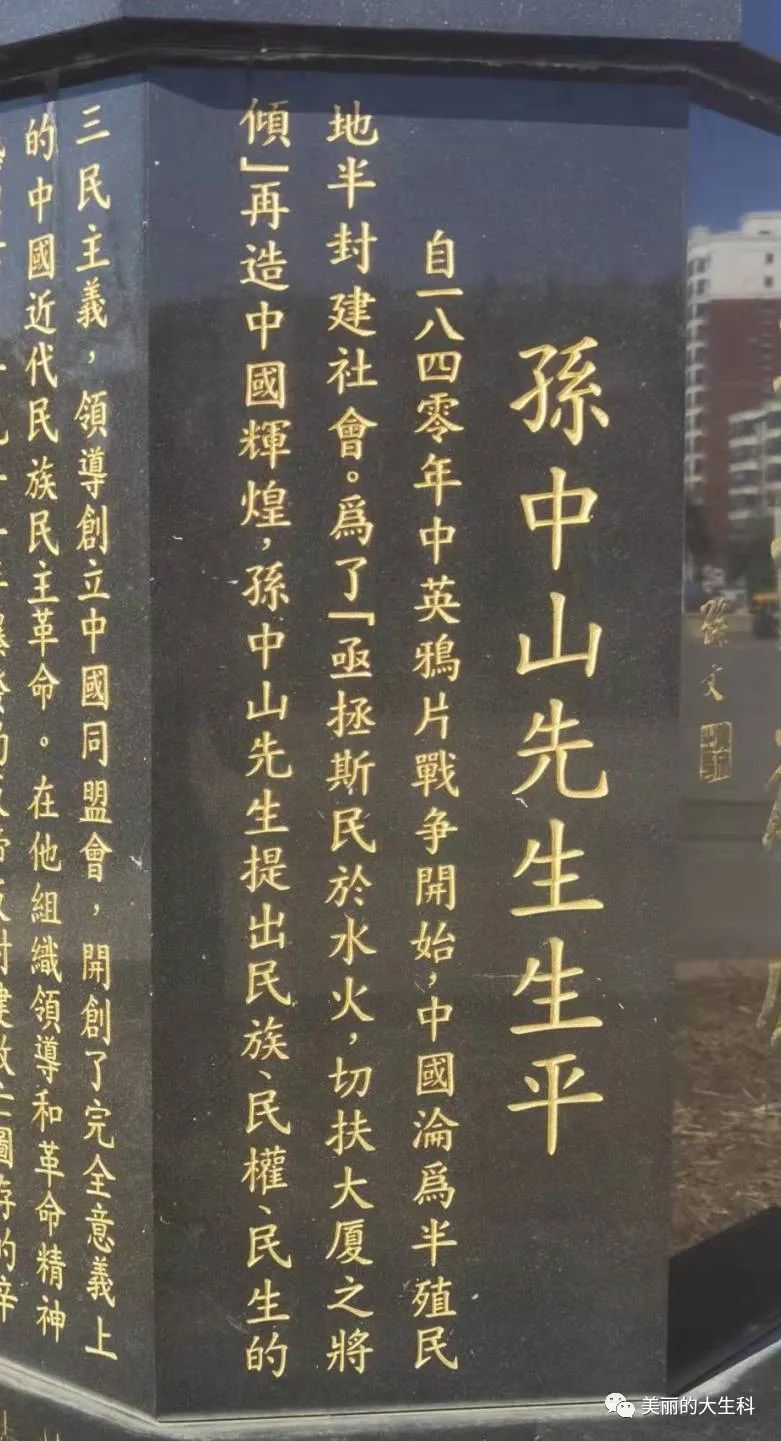 孫文
孫中山先生生平
自一八四零年中英鴉片戰争開始，中國淪爲半殖民
地半封建社會。爲了「亟拯斯民於水火，切扶大厦之將
傾」再造中國輝煌，孫中山先生提出民族、民權、民生的
三民主義，領導創立中國同盟會，開創了完全意義上
的中國近代民族民主革命。在他組織領導和革命精神
美丽的大生科